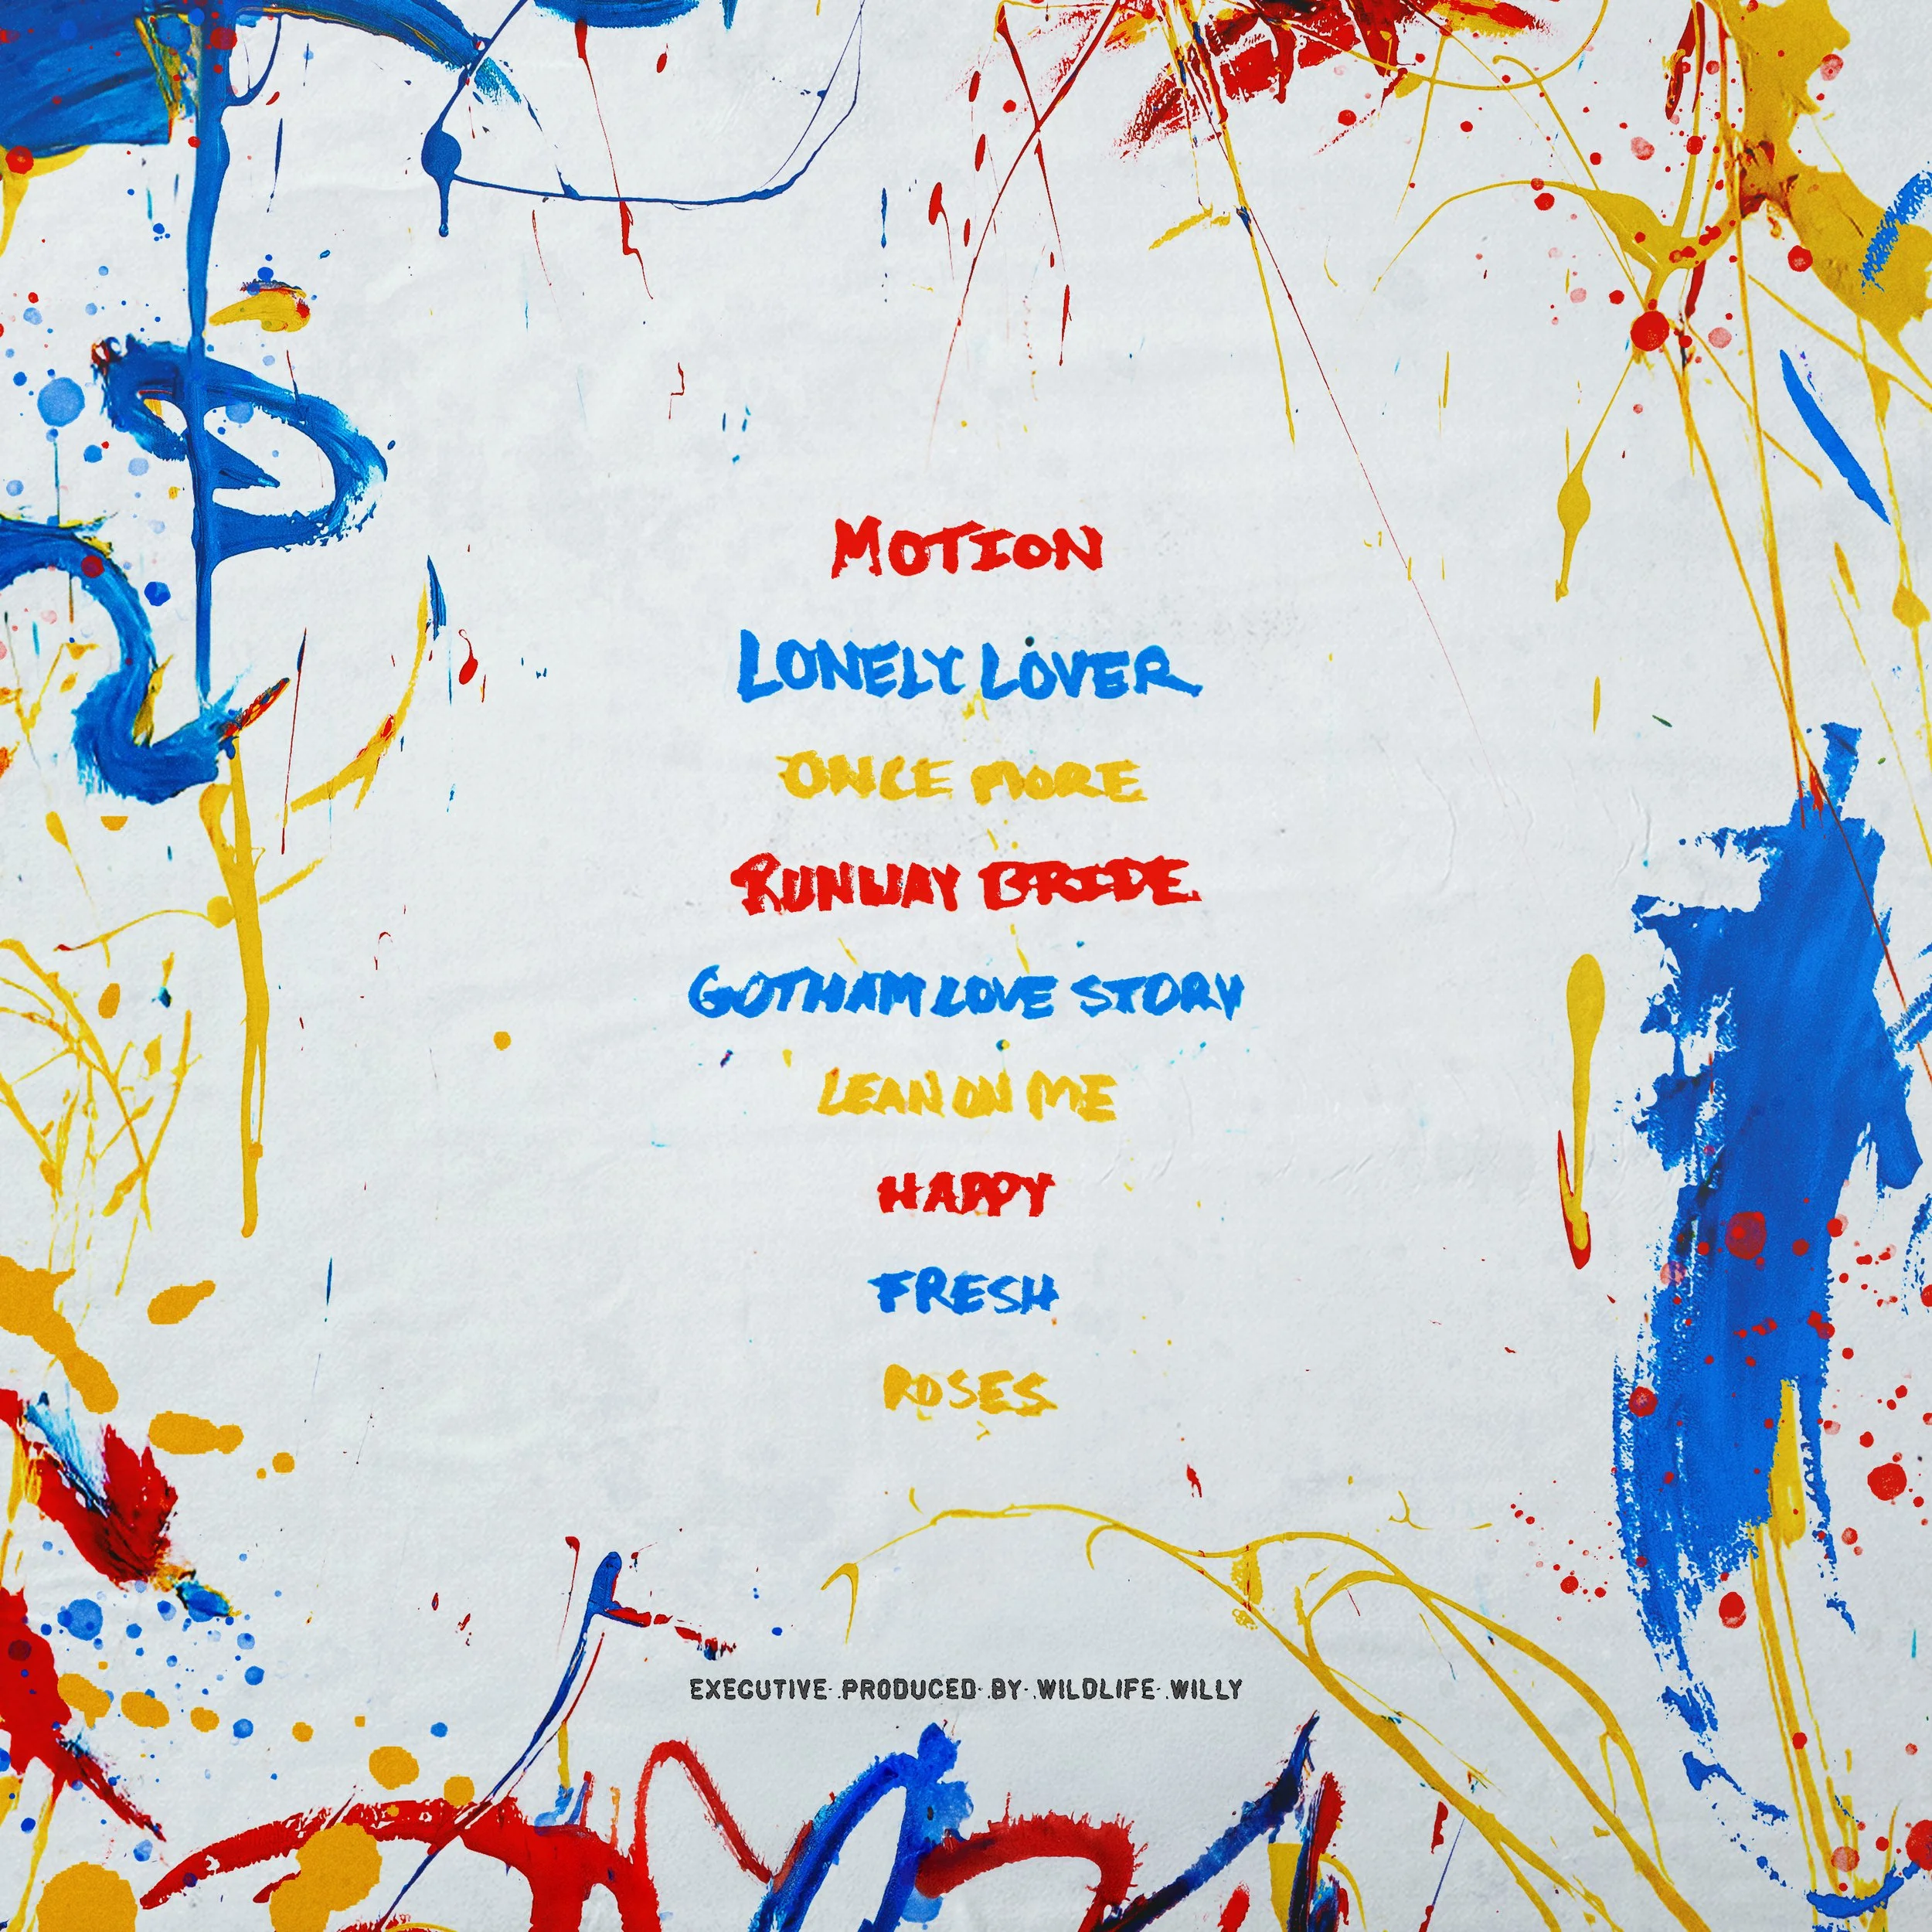 MOTION
LONELY LOVER
ONCE MORE
RUNWAY BRIDE
GOTHAM LOVE STORY
LEAN ON ME
HAPPY
FRESH
ROSES
EXECUTIVE PRODUCED BY WILDLIFE WILLY